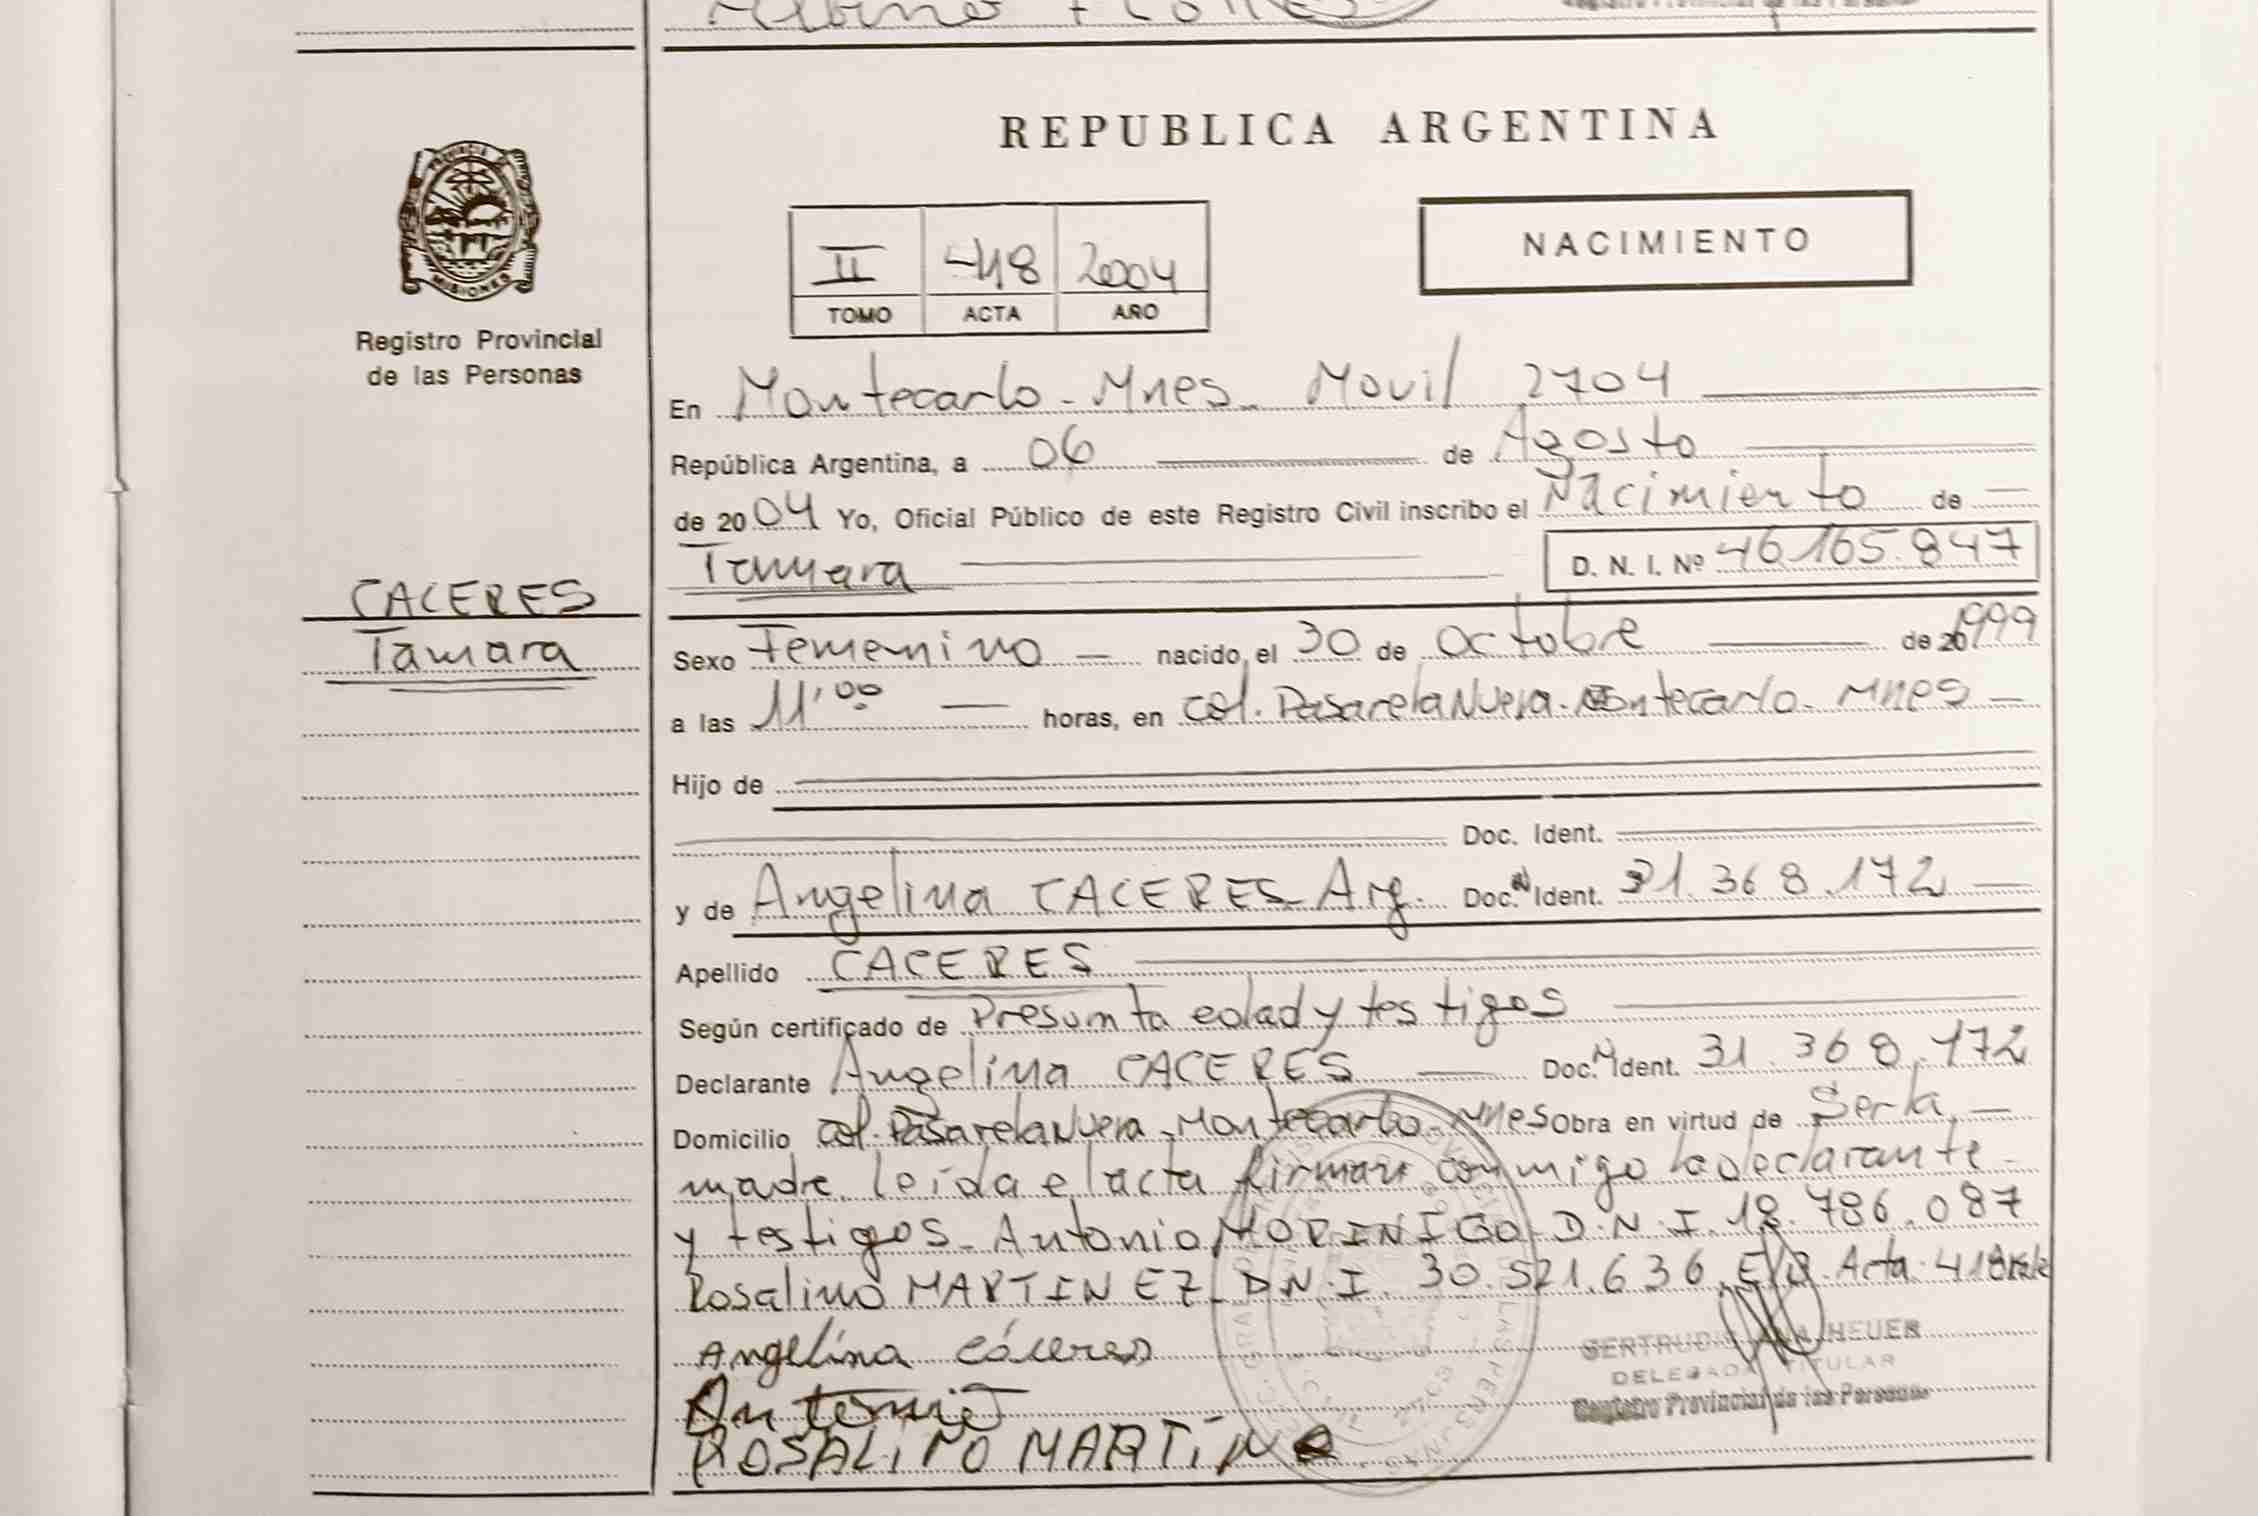 REPUBLICA ARGENTINA
PROVINCIA DE
MISIONES
Registro Provincial
de las Personas
II 418 2004
TOMO ACTA AÑO
NACIMIENTO
En Montecarlo - Mnes - Movil 2704
República Argentina, a 06 de Agosto
de 2004 Yo, Oficial Público de este Registro Civil inscribo el Nacimiento de
Tamara D. N. I. Nº 46.165.847
CACERES
Tamara
Sexo Femenino - nacido el 30 de octubre de 20 1999
a las 11,00 horas, en Col. Pasarela Nueva. Montecarlo - Mnes -
Hijo de
Doc. Ident.
y de Angelina CACERES Arg. Doc. N Ident. 31.368.172
Apellido CACERES
Según certificado de Presunta edad y testigos
Declarante Angelina CACERES Doc. N Ident. 31.368.172
Domicilio Col. Pasarela Nueva - Montecarlo - Mnes Obra en virtud de Ser la
madre. leída el acta firman conmigo la declarante
y testigos - Antonio MORINIGO D.N.I. 18.786.087
Rosalino MARTINEZ D.N.I. 30.521.636. Acta. 418
Angelina Cáceres
Antonio
ROSALINO MARTÍN
GERTRUDIS HEUER
DELEGADA TITULAR
Registro Provincial de las Personas